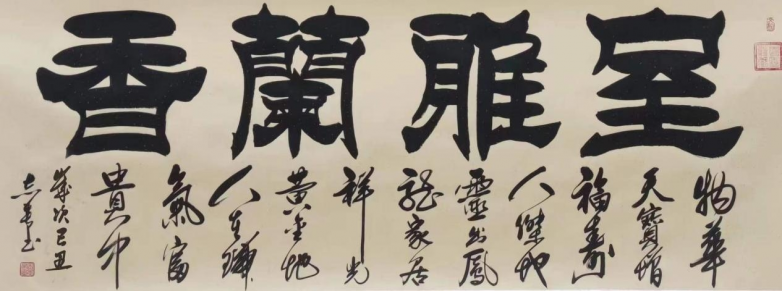 室雅蘭香
物華
天寶增
福壽
人傑地
靈出鳳
龍家居
祥光
黃金地
人在瑞
氣富
貴中
歲次己丑